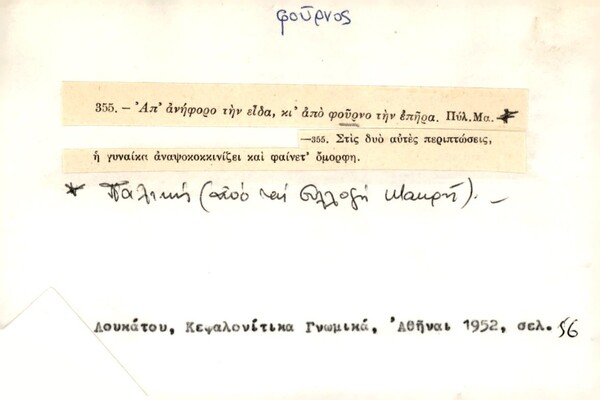 φοῦρνος
355. — Ἀπ' ἀνήφορο τὴν εἶδα, κι' ἀπὸ φοῦρνο τὴν ἐπῆρα. Πύλ.Μα. *
—355. Στὶς δυὸ αὐτὲς περιπτώσεις,
ἡ γυναίκα ἀναψοκοκκινίζει καὶ φαίνετ' ὄμορφη.
* Παλικὴ (ἀπό τή Συλλογή Μακρή). —
Λουκάτου, Κεφαλονίτικα Γνωμικά, Ἀθῆναι 1952, σελ. 56